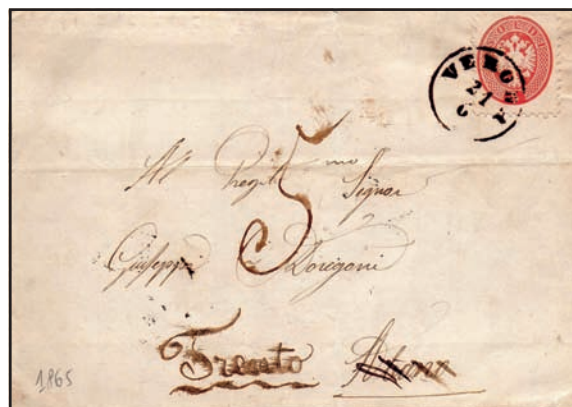 VERONA
21
6
5
Al Pregmo Signor
Giuseppe Dorigoni
Trento
1865